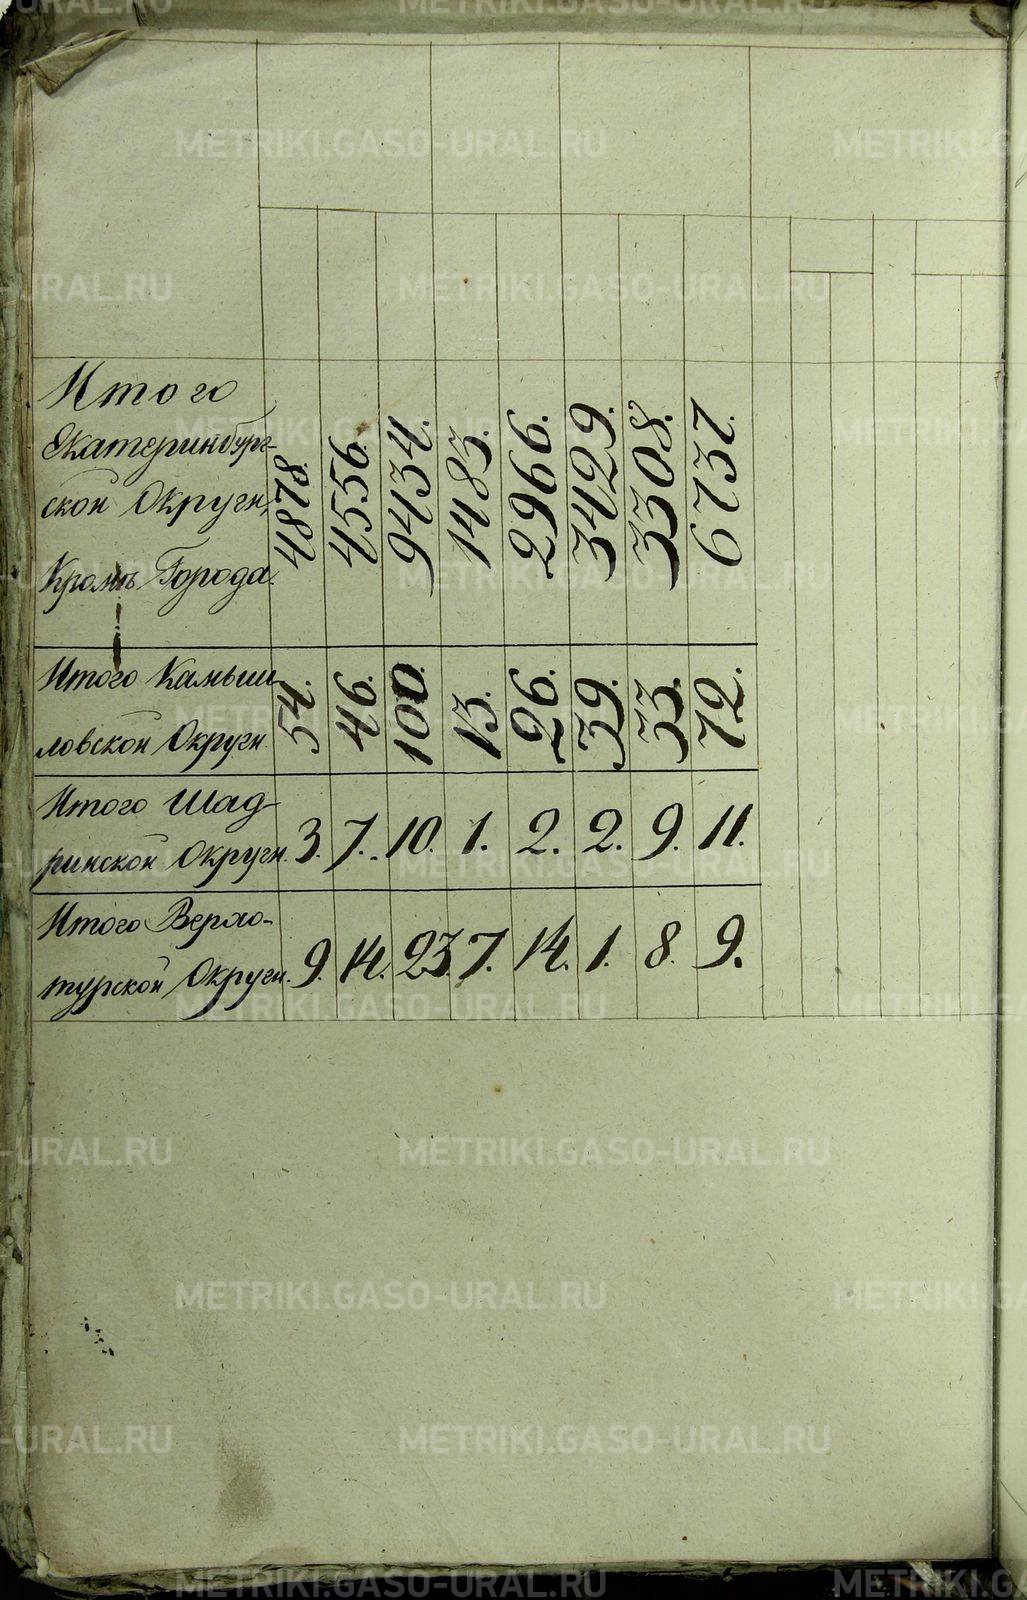 Итого
Екатеринбург-
ской Округи,
Кромѣ Города.
4878. 4556. 9434. 1483. 2966. 3429. 3308. 6737.
Итого Камыш-
ловской Округи.
54. 46. 100. 13. 26. 39. 33. 72.
Итого Шад-
ринской Округи.
3. 7. 10. 1. 2. 2. 9. 11.
Итого Верхо-
турской Округи.
9. 14. 23. 7. 14. 1. 8. 9.
METRIKI.GASO-URAL.RU